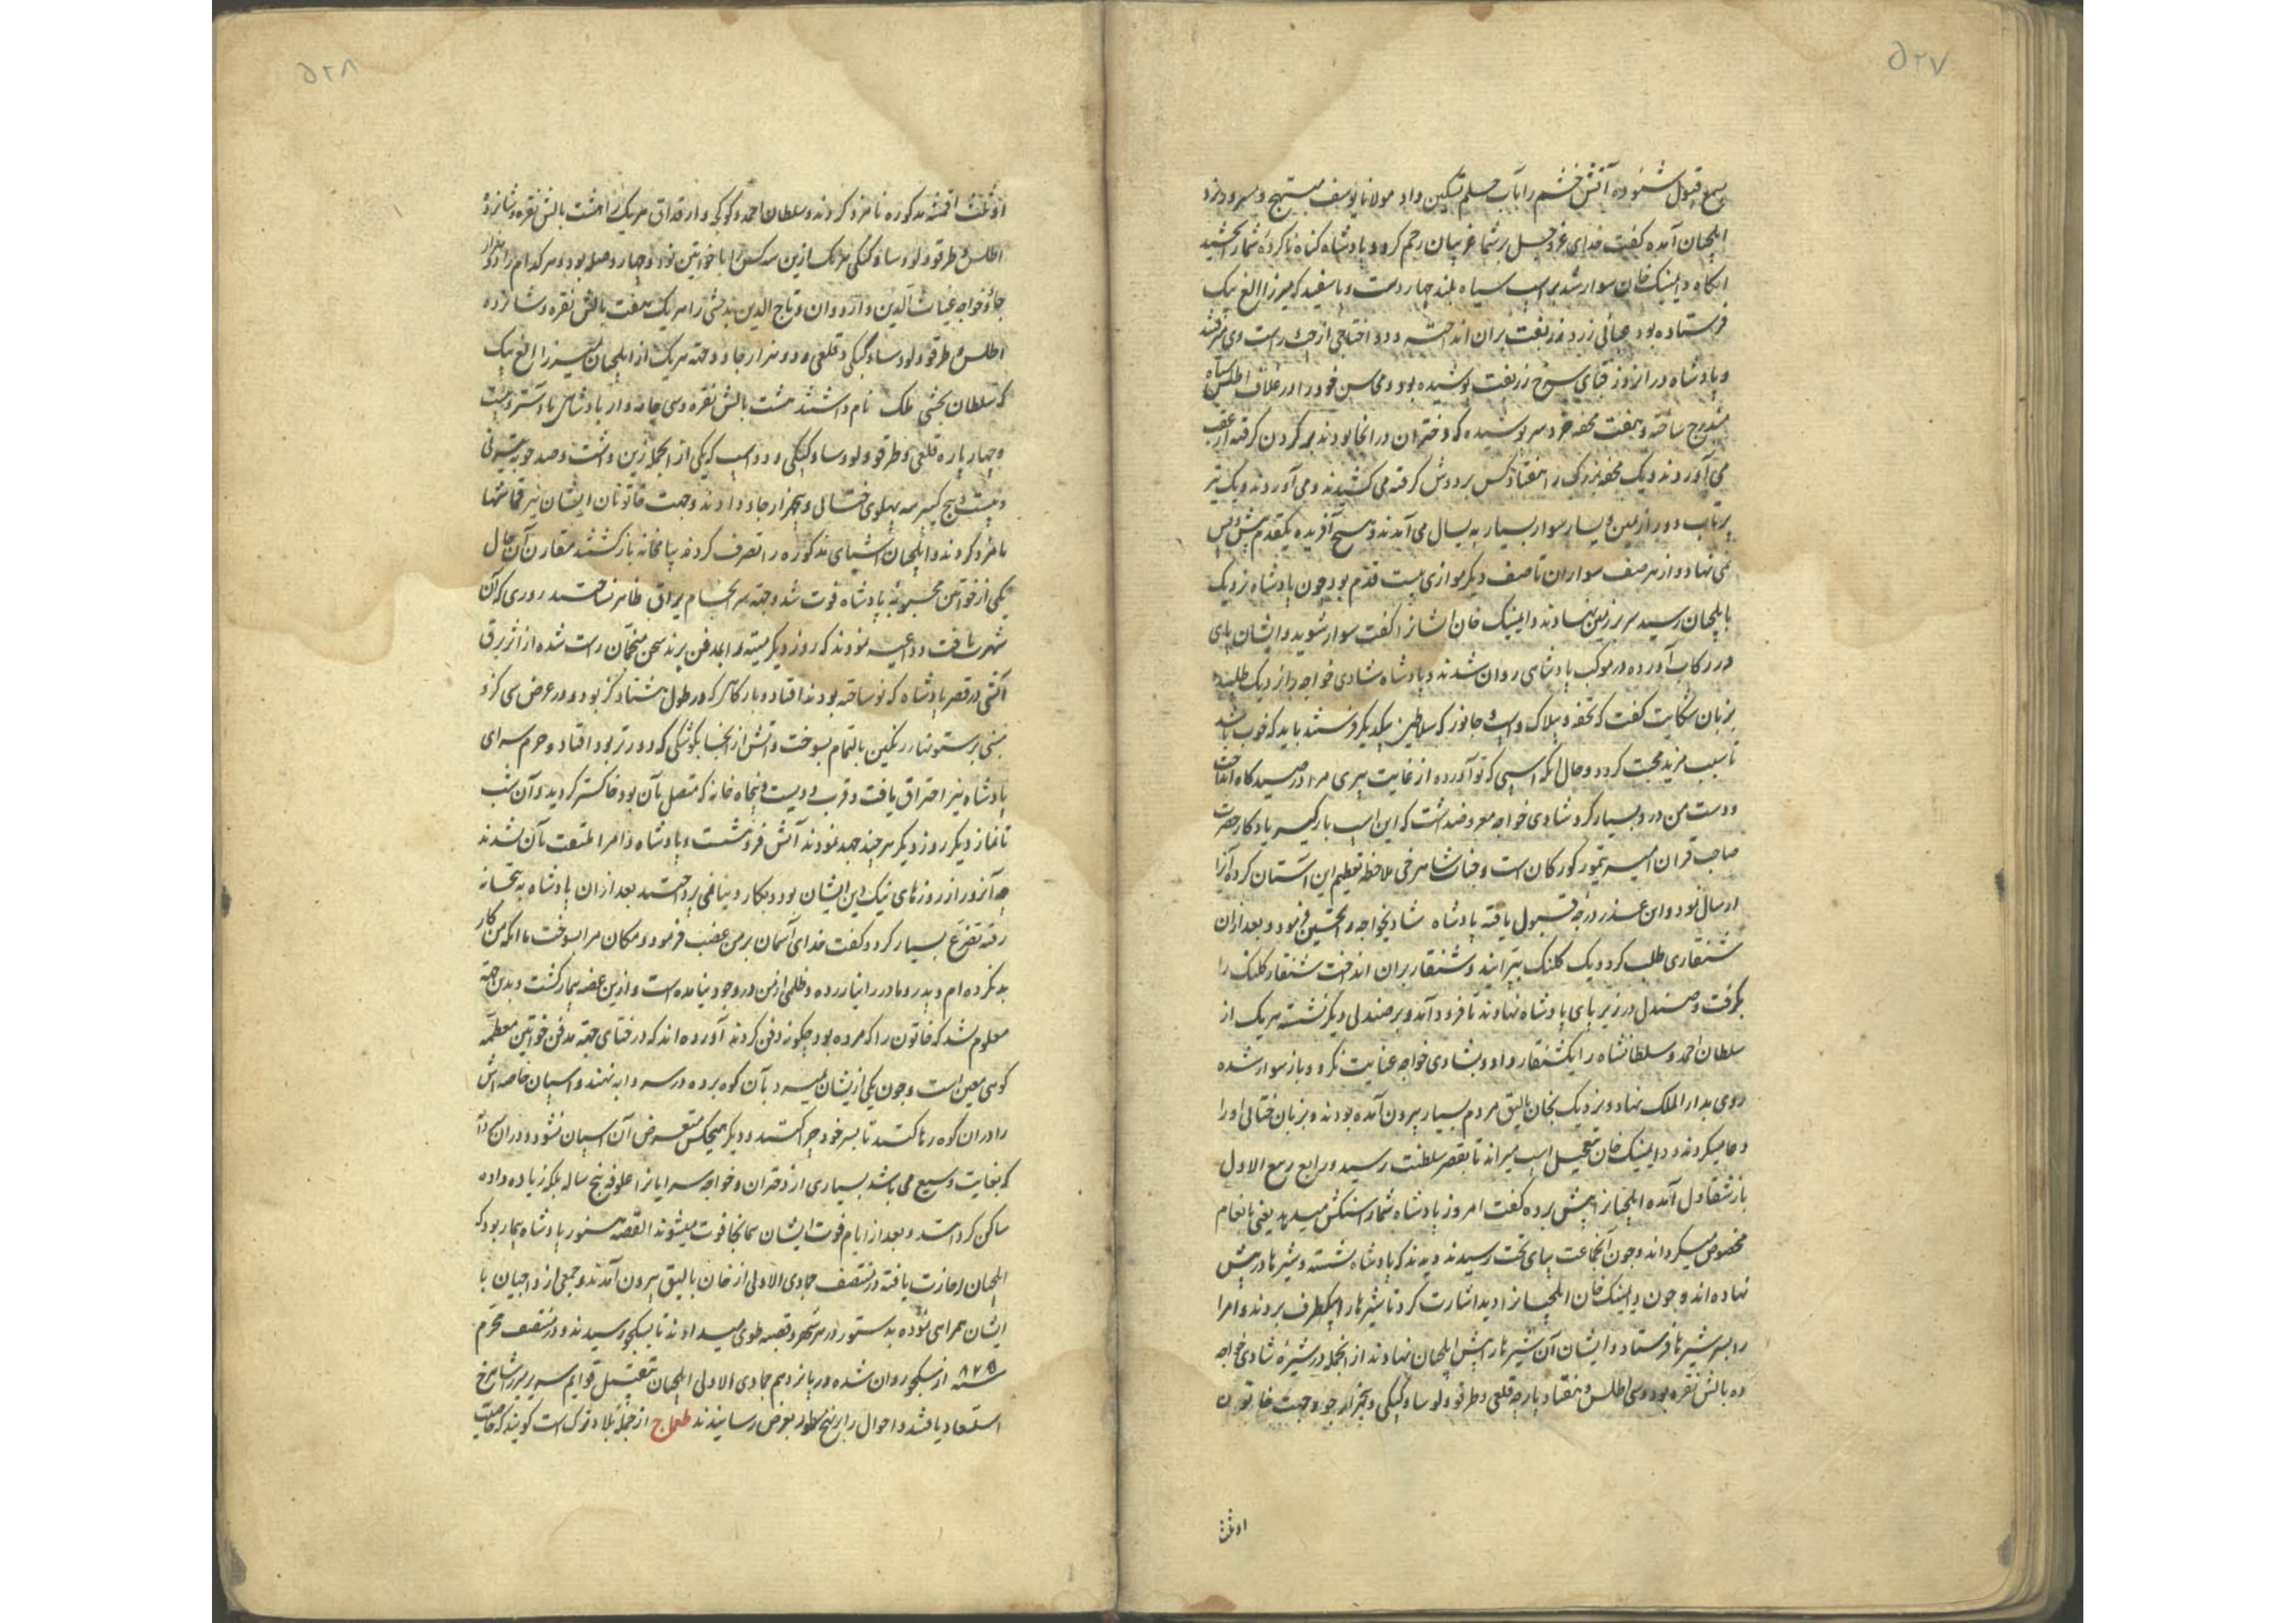 ۵۲۷
بسمع قبول شنوده آتش خشم را بآب حلم تسکین داد مولانا یوسف مبتهج و مسرور نزد
ایلچیان آمده کفت خدای عز و جل بر شما غریبان رحم کرد و پادشاه کناه ناکرده شما را بخشید
انکاه داینک خان سوار شد بر اسب سیاه بلند چهار دست و پا سفید که میرزا الغ بیک
فرستاده بود جلی زرد زربفت بران انداخته و دو اختاجی از چپ و راست وی میرفتند
و پادشاه در انروز قبای سرخ زربفت پوشیده بود و محاسن خود را در غلاف اطلس سیاه
مندرج ساخته و هفت محفه خرد سر پوشیده که دختران در انجا بودند بر کردن کرفته از عقب
می آوردند و یک محفه بزرک را هفتاد کس بر دوش کرفته می کشیدند و می آوردند و یک تیر
پرتاب دور از یمین و یسار سوار بسیار به یسال می آمدند و هیچ آفریده یکقدم پیش و پس
نمی نهاد و از هر صف سواران تا صف دیکر موازی بیست قدم بود چون پادشاه نزدیک
بایلچیان رسید سر بر زمین نهادند و داینک خان ایشانرا کفت سوار شوید و ایشان پای
در رکاب آورده در موکب پادشاهی روان شدند و پادشاه شادی خواجه را نزدیک طلبیده
بزبان شکایت کفت که تحفه و بیلاک و اسب و جانور که سلاطین بیکدیکر فرستند باید که خوب باشد
تا سبب مزید محبت کردد و حال انکه اسبی که تو آورده از غایت پیری مرا در صیدکاه انداخت
و دست من درد بسیار کرد شادی خواجه معروضداشت که این اسب بارکیر یادکار حضرت
صاحب قران امیر تیمور کورکان است و جناب شاهرخی ملاحظه تعظیم این آستان کرده آنرا
ارسال نمود و این عذر درجه قبول یافته پادشاه شادیخواجه را تحسین فرمود و بعد ازان
شنقاری طلب کرد و یک کلنک بپرانید و شنقار بران انداخت شنقار کلنک را
بکرفت و صندل در زیر پای پادشاه نهادند تا فرود آمد و بر صندلی دیکر نشسته هر یک از
سلطان احمد و سلطانشاه را یکشنقار داد و بشادی خواجه عنایت نکرد و باز سوار شده
روی بدار الملک نهاد و نزدیک بخان بالیق مردم بسیار بیرون آمده بودند و بزبان ختائی او را
دعا میکردند و داینک خان بتعجیل اسب میراند تا بقصر سلطنت رسید و رابع ربیع الاول
باز شقاول آمده ایلچیانرا پیش برده کفت امروز پادشاه شما را سنکش میدهد یعنی بانعام
مخصوص میکرداند و چون آنجماعت بپای تخت رسیدند دیدند که پادشاه نشسته و شیرها در پیش
نهاده اند و چون داینک خان ایلچیانرا دید اشارت کرد تا شیرها را بیکطرف بردند و امرا
را بسر شیرها فرستاد و ایشان آن شیرها را پیش ایلچیان نهادند از انجمله در شیره شادی خواجه
ده بالش نقره بود و سی اطلس و هفتاد پارچه قلعی و طرقو و لو و ساو کپکی و پنجهزار جو و جهت خاتون
او ثلث
۵۲۸
او ثلث اقمشه مذکوره نامزد کردند و سلطان احمد و کوکجه و ارقداق هر یک را هشت بالش نقره و شانزده
اطلس و طرقو و لو و ساو کپکی هر یک ازین سه کس را با خواتین نود و چهار وصله بود و هر کدام را دو هزار
جاو و خواجه غیاث الدین و اردوان و تاج الدین بدخشی را هر یک هفت بالش نقره و شانزده
اطلس و طرقو و لو و ساو کپکی و قلعی و دو هزار جاو و جهت هر یک از ایلچیان میرزا الغ بیک
که سلطان بخشی ملک نام داشتند هشت بالش نقره و سی جامه وار پادشاهی با آستر و بیست
و چهار پاره قلعی و طرقو و لو و ساو کپکی و دو اسب که یکی از انجمله زین داشت و صد چوبه تیر نی
و بیست و پنج کیبر سه پهلوی ختائی و پنجهزار جاو دادند و جهت خاتونان ایشان نیز قماشها
نامزد کردند و ایلچیان اشیای مذکوره را تصرف کرده بیامخانه باز کشتند مقارن آن حال
یکی از خواتین محبوبه پادشاه فوت شد و جهة سر انجام یراق ظاهر نساختند روزی که آن
شهرت یافت و داعیه نمودند که روز دیکر میته را بمدفن برند سخن منجمان راست شده از اثر برق
آتشی در قصر پادشاه که نو ساخته بودند افتاد و بارکاهی که در طول هشتاد کز بود و در عرض سی کز و
مبنی بر ستونهای رنکین بالتمام بسوخت و آتش از انجا بکوشکی که دورتر بود افتاد و حرم سرای
پادشاه نیز احتراق یافت و قرب دویست و پنجاه خانه که متصل بآن بود خاکستر کردید و آن شب
تا نماز دیکر روز دیکر هر چند جهد نمودند آتش فرو ننشست و پادشاه و امرا ملتفت بآن نشدند
چه آنروز از روزهای نیک دین ایشان بود و بکار دنیا نمی پرداختند بعد ازان پادشاه به بتخانه
رفته تضرع بسیار کرد و کفت خدای آسمان بر من غضب فرمود و مکان مرا بسوخت با انکه من کار
بد نکرده ام و پدر و مادر را نیازرده و ظلمی از من در وجود نیامده است و ازین غصه بیمار کشت و بدین جهة
معلوم نشد که خاتون را که مرده بود چکونه دفن کردند آورده اند که در ختای جهة مدفن خواتین معظمه
کوهی معین است و چون یکی از یشان بمیرد بآن کوه برده در سردابه نهند و اسپان خاصه اش
را دران کوه رها کنند تا بسر خود چرا کنند و دیکر هیچکس متعرض آن اسپان نشود و دران سردابه
که بغایت وسیع می باشد بسیاری از دختران و خواجه سرایانرا علوفه پنج ساله بلکه زیاده داده
ساکن کردانند و بعد از ایام فوت ایشان همانجا فوت میشوند القصه هنوز پادشاه بیمار بود که
ایلچیان اجازت یافته در منتصف جمادی الاولی از خان بالیق بیرون آمدند و جمعی از داجیان با
ایشان همراهی نموده بدستور در هر شهر و قصبه طوی میدادند تا بسکجو رسیدند و در منتصف محرم
سنه ۸۲۵ از سکجو روان شده در پانزدهم جمادی الاولی ایلچیان بتقبیل قوایم سریر میرزا شاهرخ
استسعاد یافتند و احوال را برین نهج مسطور بعرض رسانیدند طمغاج از جمله بلاد ترک است کویند که خاصیت